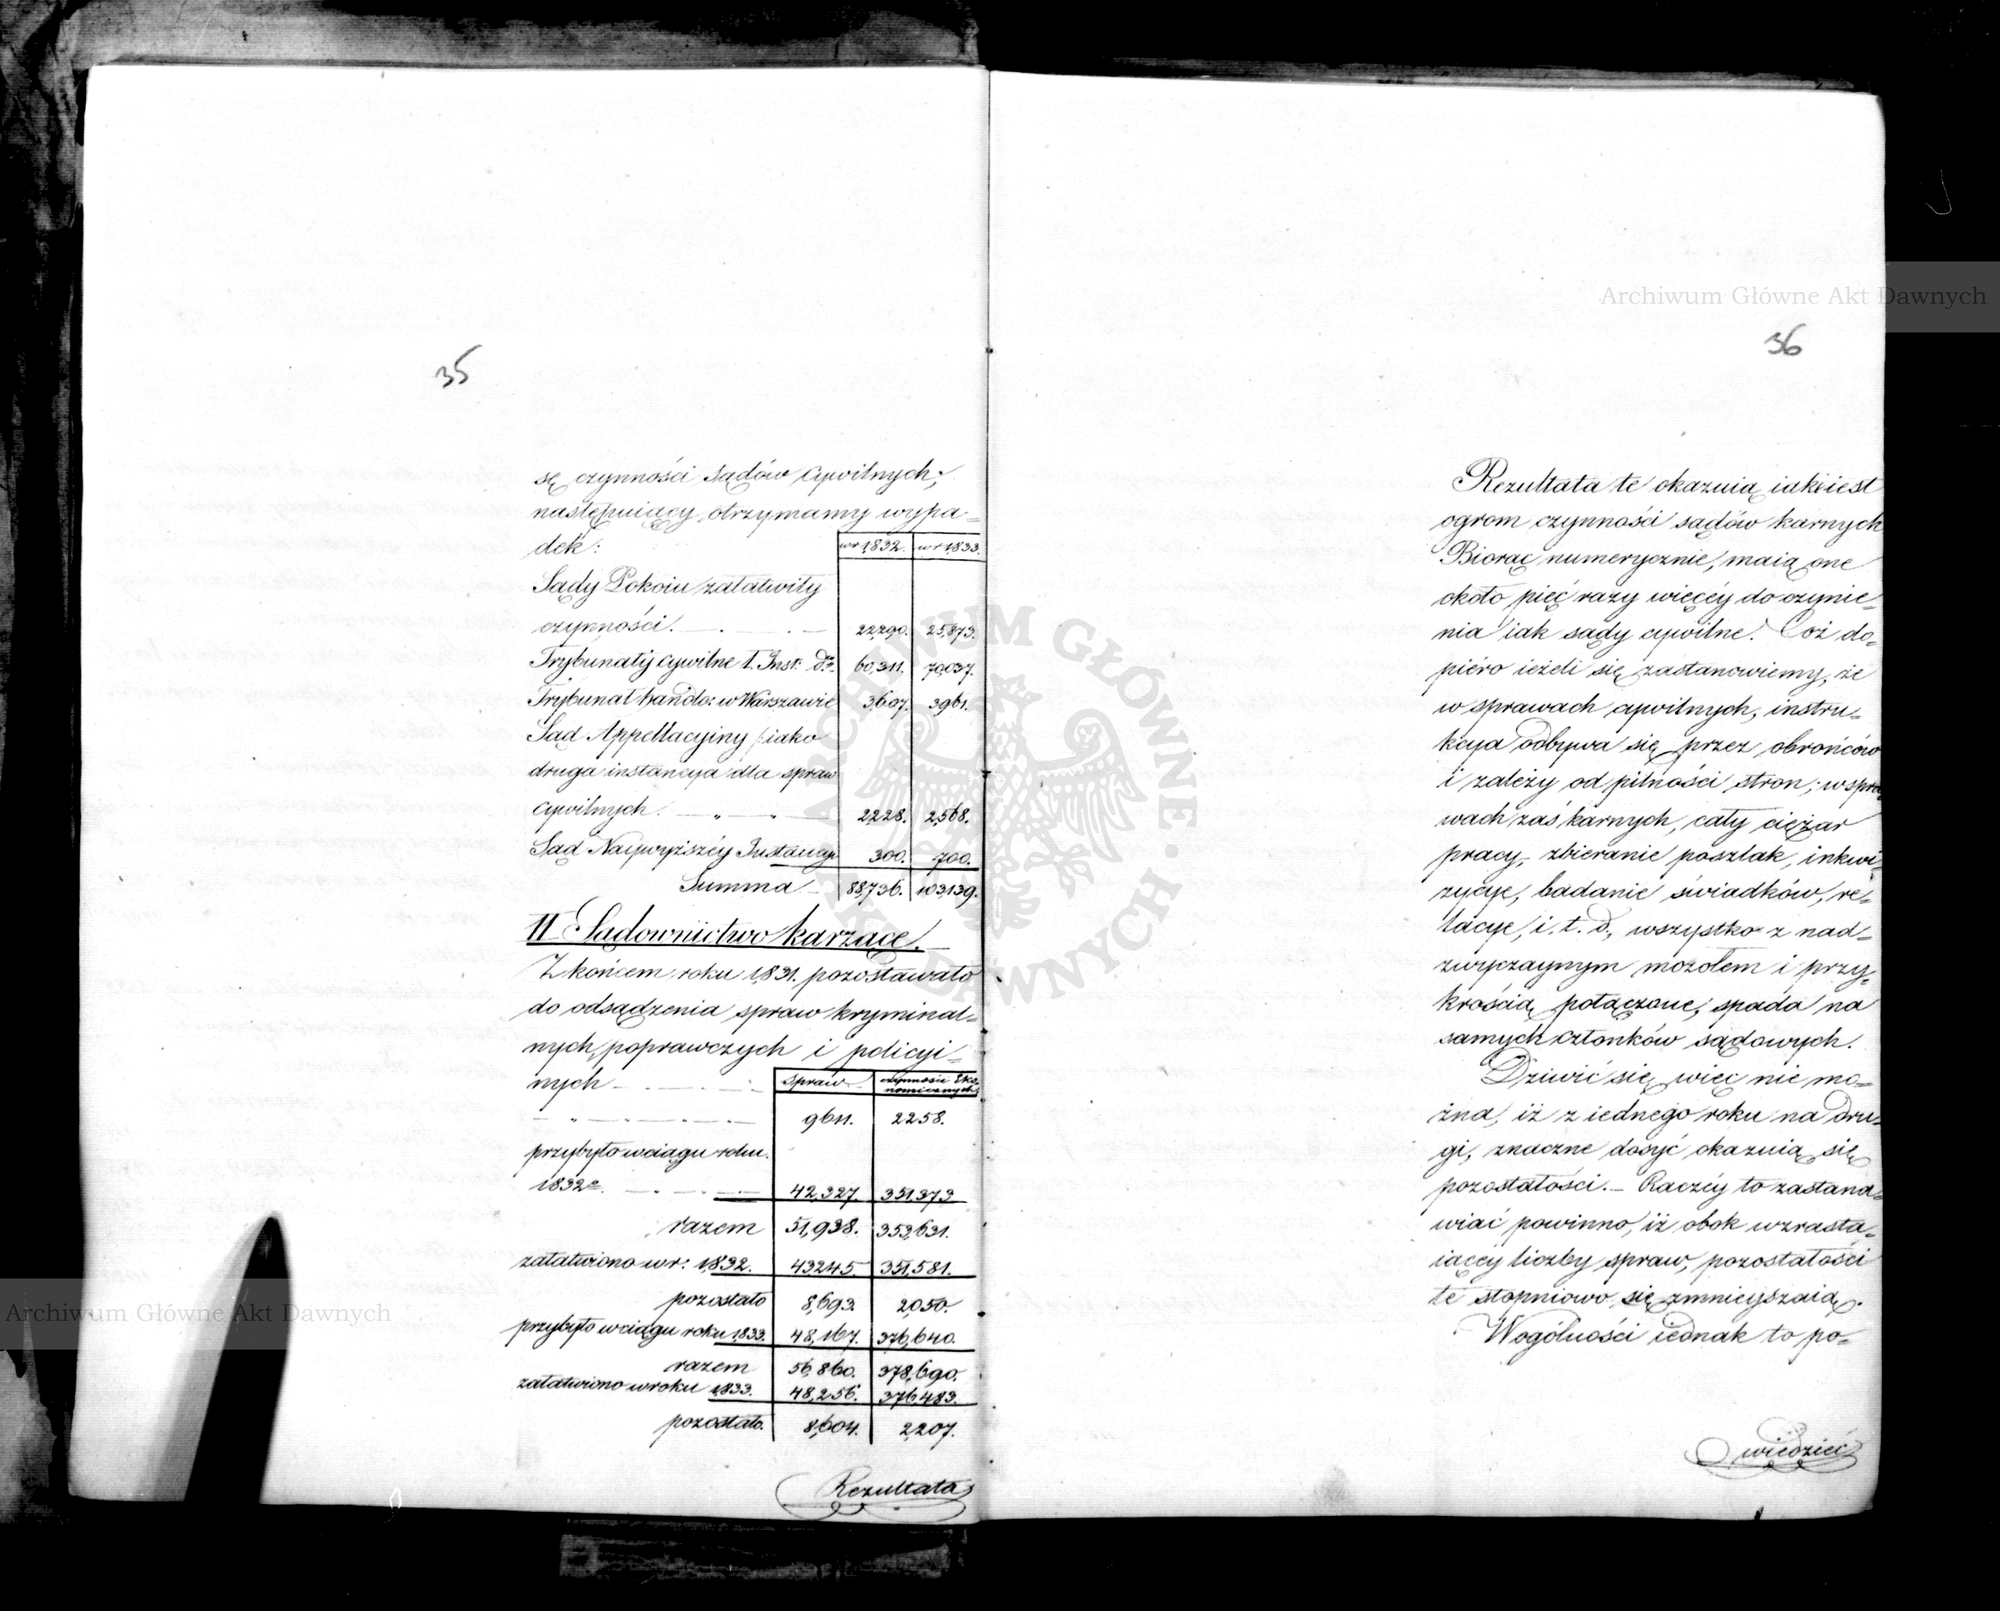 35
sę czynności sądów cywilnych,
następuiący otrzymamy wypa=
dek:
w r 1832. w r 1833.
Sądy Pokoiu załatwiły
czynności. 22,290. 25,873.
Trybunały cywilne 1. Inst: dto 60,311. 70,037.
Trybunał handlo: w Warszawie 3,607. 3,961.
Sąd Appellacyiny /: iako
druga instancya dla spraw
cywilnych. 2,228. 2,568.
Sąd Naywyższéy Instancyi 300. 700.
Summa 88,736. 103,139.
II Sądownictwo karzące.
Z końcem roku 1831. pozostawało
do odsądzenia spraw kryminal=
nych, poprawczych i policyi=
nych spraw czynności Eko=
nomicznych
9611. 2258.
przybyło w ciągu roku
1832o 42,327. 351,373
razem 51,938. 353,631.
załatwiono w r: 1832. 43245. 351,581.
pozostało 8,693 2,050.
przybyło w ciągu roku 1833. 48,167. 376,640.
razem 56,860. 378,690.
załatwiono w roku 1833. 48,256. 376,483.
pozostało. 8,604. 2,207.
Rezultata
36
Rezultata te okazuią iaki iest
ogrom czynności sądów karnych
Biorąc numerycznie, maią one
około pięć razy więcéy do czynie=
nia iak sądy cywilne. Coż do=
piéro ieżeli się zastanowiemy, że
w sprawach cywilnych, instru=
kcya odbywa się przez obrońców
i zależy od pilności stron; w spra
wach zaś karnych, cały ciężar
pracy, zbieranie poszlak, inkwi=
zycye, badanie świadków, re=
lacye, i. t. d., wszystko z nad=
zwyczaynym mozołem i przy=
krością połączone, spada na
samych członków sądowych.
Dziwić się więc nie mo=
żna, iż z iednego roku na dru=
gi, znaczne dosyć okazuią się
pozostałości. – Raczéy to zastana=
wiać powinno, iż obok wzrasta=
iącéy liczby spraw, pozostałości
te stopniowo się zmnieyszaią.
Wogólności iednak to po=
wiedzieć
Archiwum Główne Akt Dawnych
Archiwum Główne Akt Dawnych
ARCHIWUM GŁÓWNE AKT DAWNYCH